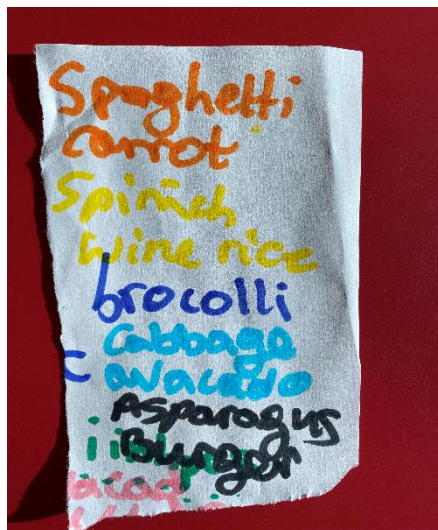 Spaghetti
carrot
Spinach
wine rice
brocolli
Cabbage
c avacado
Asparagus
Burger